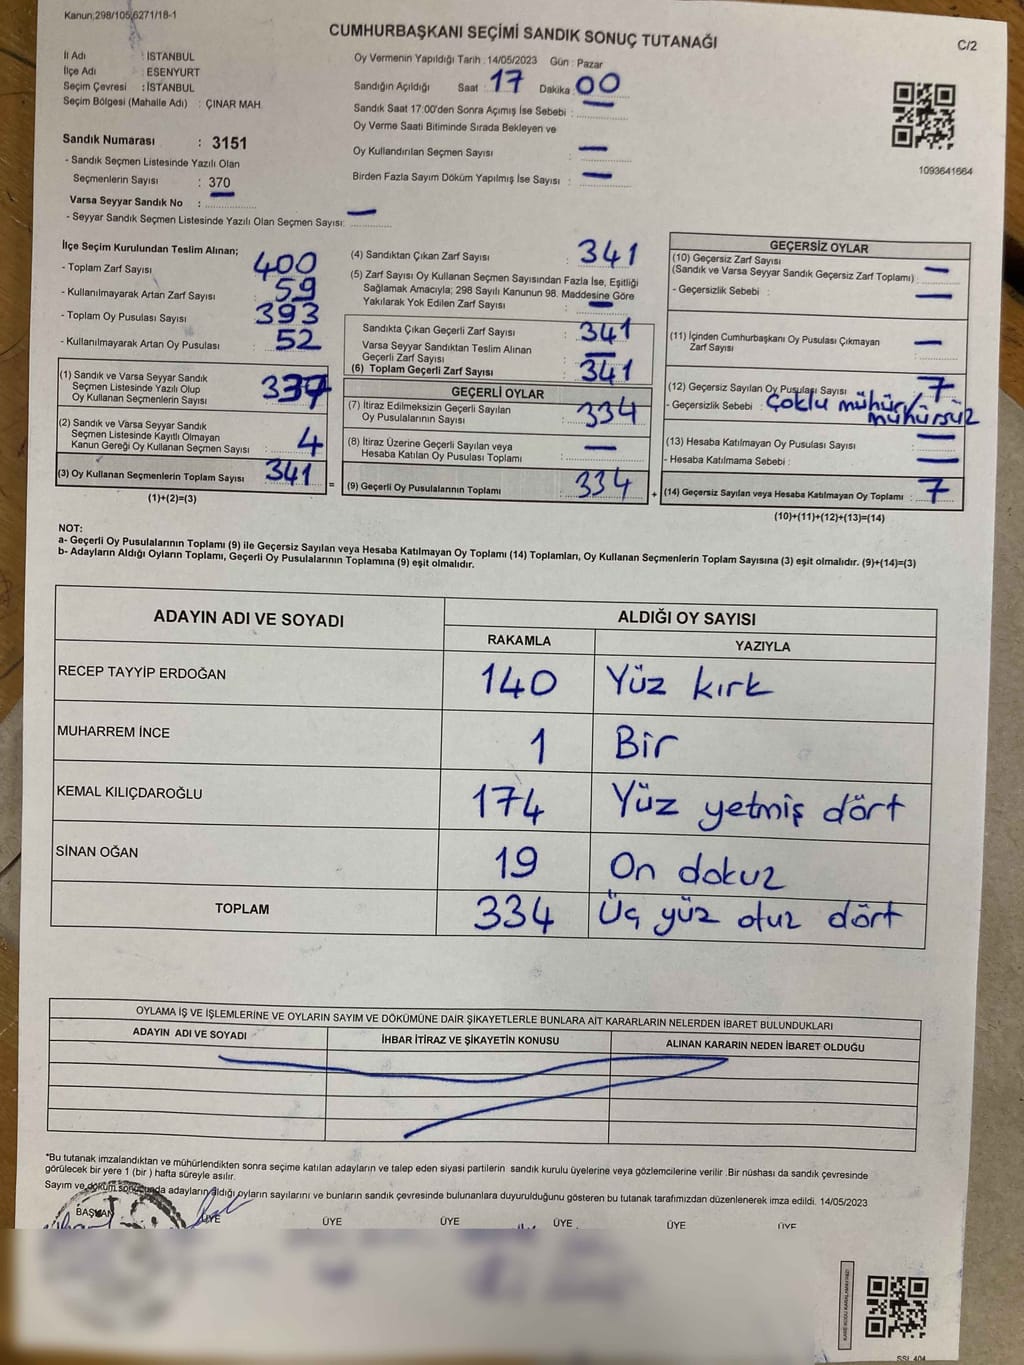 Kanun;298/105,6271/18-1
CUMHURBAŞKANI SEÇİMİ SANDIK SONUÇ TUTANAĞI
C/2
İl Adı : İSTANBUL
İlçe Adı : ESENYURT
Seçim Çevresi : İSTANBUL
Seçim Bölgesi (Mahalle Adı) : ÇINAR MAH.
Oy Vermenin Yapıldığı Tarih : 14/05/2023 Gün : Pazar
Sandığın Açıldığı Saat : 17 Dakika : 00
Sandık Saat 17:00'den Sonra Açımış İse Sebebi : —
Oy Verme Saati Bitiminde Sırada Bekleyen ve
Oy Kullandırılan Seçmen Sayısı : —
Birden Fazla Sayım Döküm Yapılmış İse Sayısı : —
1093641664
Sandık Numarası : 3151
- Sandık Seçmen Listesinde Yazılı Olan
Seçmenlerin Sayısı : 370
Varsa Seyyar Sandık No : —
- Seyyar Sandık Seçmen Listesinde Yazılı Olan Seçmen Sayısı: —
İlçe Seçim Kurulundan Teslim Alınan;
- Toplam Zarf Sayısı : 400
- Kullanılmayarak Artan Zarf Sayısı : 59
- Toplam Oy Pusulası Sayısı : 393
- Kullanılmayarak Artan Oy Pusulası : 52
(1) Sandık ve Varsa Seyyar Sandık
Seçmen Listesinde Yazılı Olup
Oy Kullanan Seçmenlerin Sayısı : 337
(2) Sandık ve Varsa Seyyar Sandık
Seçmen Listesinde Kayıtlı Olmayan
Kanun Gereği Oy Kullanan Seçmen Sayısı : 4
(3) Oy Kullanan Seçmenlerin Toplam Sayısı : 341
(1)+(2)=(3)
=
(4) Sandıktan Çıkan Zarf Sayısı : 341
(5) Zarf Sayısı Oy Kullanan Seçmen Sayısından Fazla İse, Eşitliği
Sağlamak Amacıyla; 298 Sayılı Kanunun 98. Maddesine Göre
Yakılarak Yok Edilen Zarf Sayısı : —
Sandıkta Çıkan Geçerli Zarf Sayısı : 341
Varsa Seyyar Sandıktan Teslim Alınan
Geçerli Zarf Sayısı : —
(6) Toplam Geçerli Zarf Sayısı : 341
GEÇERLİ OYLAR
(7) İtiraz Edilmeksizin Geçerli Sayılan
Oy Pusulalarının Sayısı : 334
(8) İtiraz Üzerine Geçerli Sayılan veya
Hesaba Katılan Oy Pusulası Toplamı : —
(9) Geçerli Oy Pusulalarının Toplamı : 334
+
GEÇERSİZ OYLAR
(10) Geçersiz Zarf Sayısı
(Sandık ve Varsa Seyyar Sandık Geçersiz Zarf Toplamı) : —
- Geçersizlik Sebebi : —
(11) İçinden Cumhurbaşkanı Oy Pusulası Çıkmayan
Zarf Sayısı : —
(12) Geçersiz Sayılan Oy Pusulası Sayısı : 7
- Geçersizlik Sebebi : Çoklu mühür/
mühürsüz
(13) Hesaba Katılmayan Oy Pusulası Sayısı : —
- Hesaba Katılmama Sebebi : —
(14) Geçersiz Sayılan veya Hesaba Katılmayan Oy Toplamı : 7
(10)+(11)+(12)+(13)=(14)
NOT:
a- Geçerli Oy Pusulalarının Toplamı (9) ile Geçersiz Sayılan veya Hesaba Katılmayan Oy Toplamı (14) Toplamları, Oy Kullanan Seçmenlerin Toplam Sayısına (3) eşit olmalıdır. (9)+(14)=(3)
b- Adayların Aldığı Oyların Toplamı, Geçerli Oy Pusulalarının Toplamına (9) eşit olmalıdır.
ADAYIN ADI VE SOYADI
ALDIĞI OY SAYISI
RAKAMLA YAZIYLA
RECEP TAYYİP ERDOĞAN 140 Yüz kırk
MUHARREM İNCE 1 Bir
KEMAL KILIÇDAROĞLU 174 Yüz yetmiş dört
SİNAN OĞAN 19 On dokuz
TOPLAM 334 Üç yüz otuz dört
OYLAMA İŞ VE İŞLEMLERİNE VE OYLARIN SAYIM VE DÖKÜMÜNE DAİR ŞİKAYETLERLE BUNLARA AİT KARARLARIN NELERDEN İBARET BULUNDUKLARI
ADAYIN ADI VE SOYADI İHBAR İTİRAZ VE ŞİKAYETİN KONUSU ALINAN KARARIN NEDEN İBARET OLDUĞU
*Bu tutanak imzalandıktan ve mühürlendikten sonra seçime katılan adayların ve talep eden siyasi partilerin sandık kurulu üyelerine veya gözlemcilerine verilir .Bir nüshası da sandık çevresinde
görülecek bir yere 1 (bir ) hafta süreyle asılır.
Sayım ve döküm sonucunda adayların aldığı oyların sayılarını ve bunların sandık çevresinde bulunanlara duyurulduğunu gösteren bu tutanak tarafımızdan düzenlenerek imza edildi. 14/05/2023
BAŞKAN ÜYE ÜYE ÜYE ÜYE ÜYE ÜYE
SSL 404